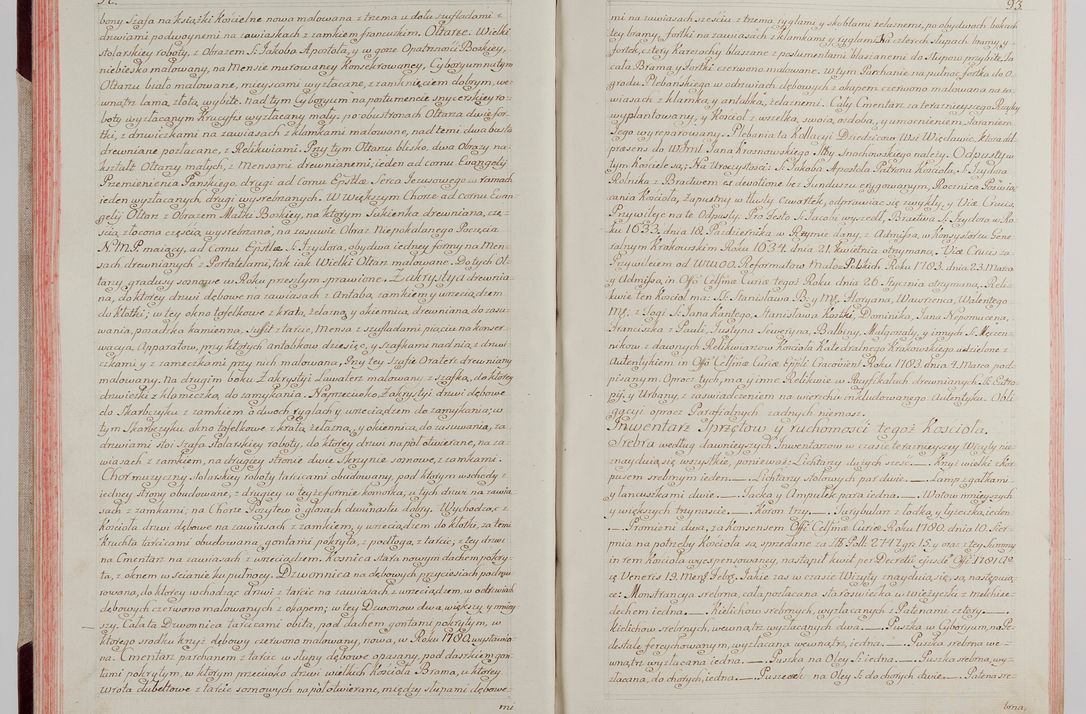 92.
bony Szafa na książki Kościelne nowa malowana z trzema u dołu szufladami z
drzwiami podwoynemi na zawiaskach z zamkiem francuskim. Ołtarze. Wielki
stolarskiey roboty, z Obrazem S. Jakoba Apostoła, y w gorze Opatrznosci Boskiey,
niebiesko malowany, na Mensie murowaney Konsekrowaney, Cyboryum na tym
Ołtarzu biało malowane, mieyscami wyzłacane, z zamknięciem dobrym, we-
wnątrz lamą złotą wybite. Nad tym Cyboryum na postumencie snycerskiey ro-
boty wyzłacanym Krucyfix wyzłacany mały, po obustronach Ołtarza dwie for-
tki, z drzwiczkami na zawiasach z klamkami malowane, nad temi dwa busta
drewniane pozłacane, z Relikwiami. Przy tym Ołtarzu blisko, dwa Obrazy na
kształt Ołtarzy małych, z Mensami drewnianemi, jeden ad cornu Evangelij
Przemienienia Pańskiego, drugi ad Cornu Epstlæ Serca Jezusowego w ramach
ieden wyzłacanych, drugi wysrebrzanych. W Większym Chorze ad cornu Evan-
gelij Ołtarz z Obrazem Matki Boskiey, na ktorym Sukienka drewniana, czę-
scią złocona częscią wysrebrzana, na zasuwie Obraz Niepokalanego Poczęcia
N. M. P. maiący, ad Cornu Epstlæ S. Izydora, obydwa iedney formy na Men-
sach drewnianych z Portatelami, tak iak Wielki Ołtarz malowane. Do tych Oł-
tarzy, gradusy sosnowe w Roku przeszłym sprawione. Zakrystya drewnia-
na, do ktorey drzwi dębowe na zawiasach z Antabą, zamkiem y wrzeciądzem
do kłotki; w tey okno tafelkowe z kratą żelazną y okiennicą drewnianą, do zasu-
wania, posadzka kamienna, Suffit z tarcic, Mensa z szufladami pięciu na konser-
wacyą Apparatow, przy ktorych Antabkow dziesięć, y szafkami nad nią z drzwi-
czkami y z zameczkami przy niey malowana. Przy tey Szafie Oratorz drewniany
malowany. Na drugim boku Zakrystyi Lawaterz malowany z szafką, do ktorey
drzwiczki z klameczką, do zamykania. Naprzeciwko Zakrystyi drzwi dębowe
do Skarbczyku z zamkiem o dwoch ryglach y wrzeciądzem do zamykania; w
tym Skarbczyku okno tafelkowe z kratą żelazną, y okiennicą, do zasuwania, za
drzwiami stoi Szafa Stolarskiey roboty, do ktorey drzwi na poł otwierane, na za-
wiasach z zamkiem, na drugiey stronie dwie Skrzynie sosnowe, z zamkami.
Chor muzyczny stolarskiey roboty tarcicami obudowany, pod ktorym wschody z
iedney strony obudowane, z drugiey w teyże formie komorka, u tych drzwi na zawia-
sach z zamkami; na Chorze Pozytew o głosach dwunastu dobry. Wychodząc z
Kościoła drzwi dębowe na zawiasach z zamkiem, y wrzeciądzem do kłotki, za temi
Kruchta tarcicami obudowana, gontami pokryta, z podłogą, z tarcic; z tey drzwi
na Cmentarz na zawiasach z wrzeciądzem. Kośnica stara nowym dachem pokry-
ta, z oknem w scianie ku pułnocy. Dzwonnica na dębowych przyciesiach podmu-
rowana, do ktorey wchodząc drzwi z tarcic na zawiasach z wrzeciądzem, w odrzwiach
dębowych czerwono malowanych z okapem; w tey Dzwonow dwa, większy y mniey-
szy. Cała ta Dzwonnica tarcicami obita, pod dachem gontami pokrytym, w
ktorego srodku krzyż dębowy czerwono malowany, nowa, w Roku 1780 wystawio-
na. Cmentarz parchanem z tarcic w słupy dębowe opasany, pod daszkiem gon-
tami pokrytym, w ktorym przeciwko drzwi wielkich Kościoła Brama, u ktorey
wrota dubeltowe z tarcic sosnowych na poł otwierane, między słupami dębowe-
mi
93
mi na zawiasach sześciu z trzema ryglami, y skoblami żelaznemi, po obydwoch bokach
tey bramy, fortki na zawiasach z klamkami y ryglami. Na czterech słupach bramy y
fortek, cztery Karczochy blaszane z postumentami blaszanemi do słupow przybite. Ta
cała Brama y fortki czerwono malowane. W tym Parchanie na pułnoc fortka do O-
grodu Plebańskiego w odrzwiach dębowych z okapem czerwono malowana na za-
wiasach z klamką y antabką, żelaznemi. Cały Cmentarz za teraznieyszego Rządzcy
wyplantowany, y Kościoł z wszelką swoią ozdobą, y umocnieniem Staraniem
Jego wyreparowany. Plebania ta Kollacyi Dziedzicow Wsi Więcławic, ktora ad
præsens do WImć Jana Krosnowskiego Stty Snochowskiego należy. Odpusty w
tym Kościele są: Na Uroczystości S. Jakoba Apostoła Patrona Kościoła, S. Izydora
Rolnika z Bractwem ex devotione bez Funduszu erygowanym, Rocznica Poswię-
cania Kościoła, Zapustny w tłusty Czwartek, odprawiać się zwykły, y Viæ Crucis.
Przywileje na te Odpusty. Pro festo S. Jacobi wyszedł, Bractwa S. Izydora w Ro-
ku 1633. dnia 18. Pazdziernika w Rzymie dany, z Admissą, w Konsystorzu Gene-
ralnym Krakowskim Roku 1634 dnia 21. kwietnia otrzymaną. Viæ Crucis za
Przywilejem od WWOO. Reformatow Mało-Polskich, Roku 1783. dnia 23 Marca
y Admissą, in Offo Celsmæ Curiæ tegoż Roku dnia 26 Stycznia otrzymaną. Reli-
kwie ten Kościoł ma: S. Stanisława B. y M. Floryana, Wawrzenca, Walentego
MM. z Togi S. Jana Kantego, Stanisława Kostki, Dominika, Jana Nepomucena,
Franciszka z Pauli, Justyna, Seweryna, Balbiny, Małgorzaty, y innych SS. Męczen-
nikow z dawnych Relikwiarzow Kościoła Katedralnego Krakowskiego udzielone z
Autentykiem in Offo Celsmæ Curiæ Eppli Cracovien Roku 1783. dnia 4. Marca pod-
pisanym. Oprocz tych, ma y inne Relikwie w Pacyfikałach drewnianych S. Eutro-
pij. y Urbany, z zaswiadczeniem na wierzchu inkludowanego Autentyku. Obli-
gacyi oprocz Parafialnych żadnych niemasz.
Inwentarz Sprzętow y ruchomości tegoż Kościoła.
Srebra według dawnieyszych Inwentarzow w czasie teraznieyszey Wizyty nie
znayduią się wszystkie, ponieważ: Lichtarzy dużych sześć. — Krzyż wielki z Kor-
pusem srebrnym jeden. — Lichtarzy stołowych par dwie. — Lamp z gałkami
y łancuszkami dwie. — Tacka y Ampułek para iedna. — Wotow mnieyszych
y większych trzynascie. — Koron trzy. — Turybularz z łodką, y łyżeczką, ieden.
— Promieni dwa, za Konsensem Offi Celsmæ Curiæ Roku 1780. dnia 10. Sier-
pnia na potrzeby Kościoła są sprzedane za Fl. Poll: 2747 gr: 15. y oraz z tey Summy
in rem Kościoła wyexpensowaney, nastąpił kwit per Decretū ejusdē Offi 1781 A°
ię Veneris 19. Mensis Febr. Jakie zaś w czasie Wizyty znayduią się, są następuią-
ce: Monstrancya srebrna, cała pozłacana staroswiecka w wieżyczki z melchise-
dechem iedna. — Kielichow srebrnych, wyzłacanych z Patenami cztery. —
kielichow srebrnych, wewnątrz wyzłacanych dwa. — Puszka w Cyboryum, na Pe-
destale feryychowanym, wyzłacana wewnątrz, iedna. — Puszka srebrna we-
wnątrz wyzłacana iedna. — Puszka na Oley S. iedna. — Puszka srebrna, wy-
złacana, do chorych, iedna. — Puszeczki na Oley S. do chorych dwie. — Patena sre-
brna,